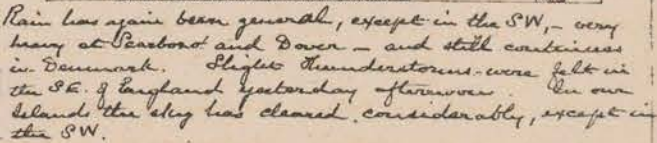 Rain has again been general, except in the SW, – very
heavy at Scarboro' and Dover – and still continues
in Denmark. Slight Thunderstorms were felt in
the S.E. of England yesterday afternoon. In our
Islands the sky has cleared considerably, except in
the SW.